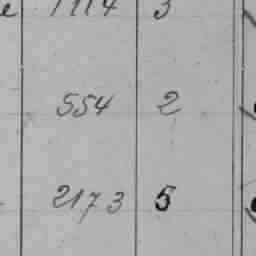 1114 3
554 2
2173 5